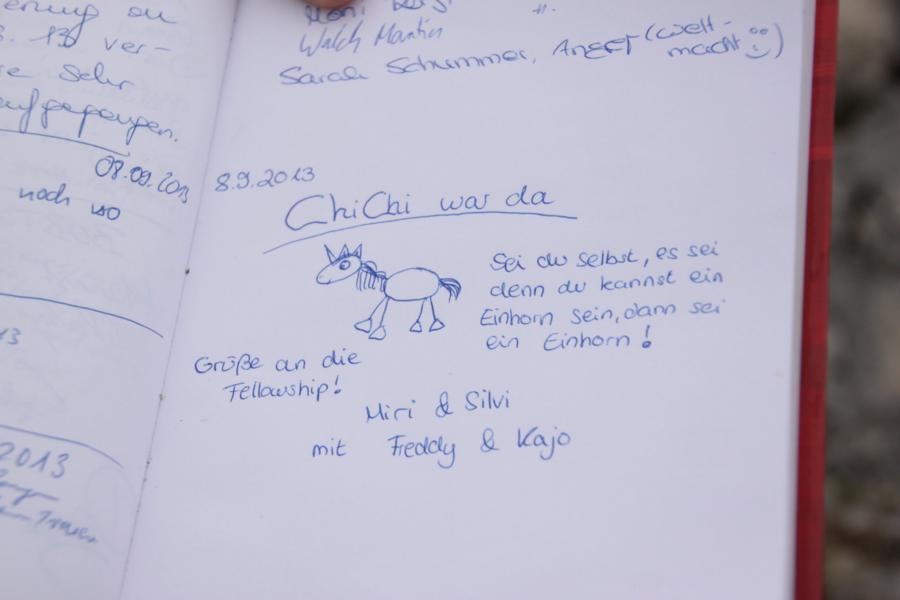 s. 13 ver-
sehr
aufgegangen.
08.09.2013
noch so
13
2013
Walch Martin
Sarah Schummer, Angef (Welt-
macht :))
8.9.2013
ChiChi war da
Sei du selbst, es sei
denn du kannst ein
Einhorn sein, dann sei
ein Einhorn!
Grüße an die
Fellowship!
Miri & Silvi
mit Freddy & Kajo